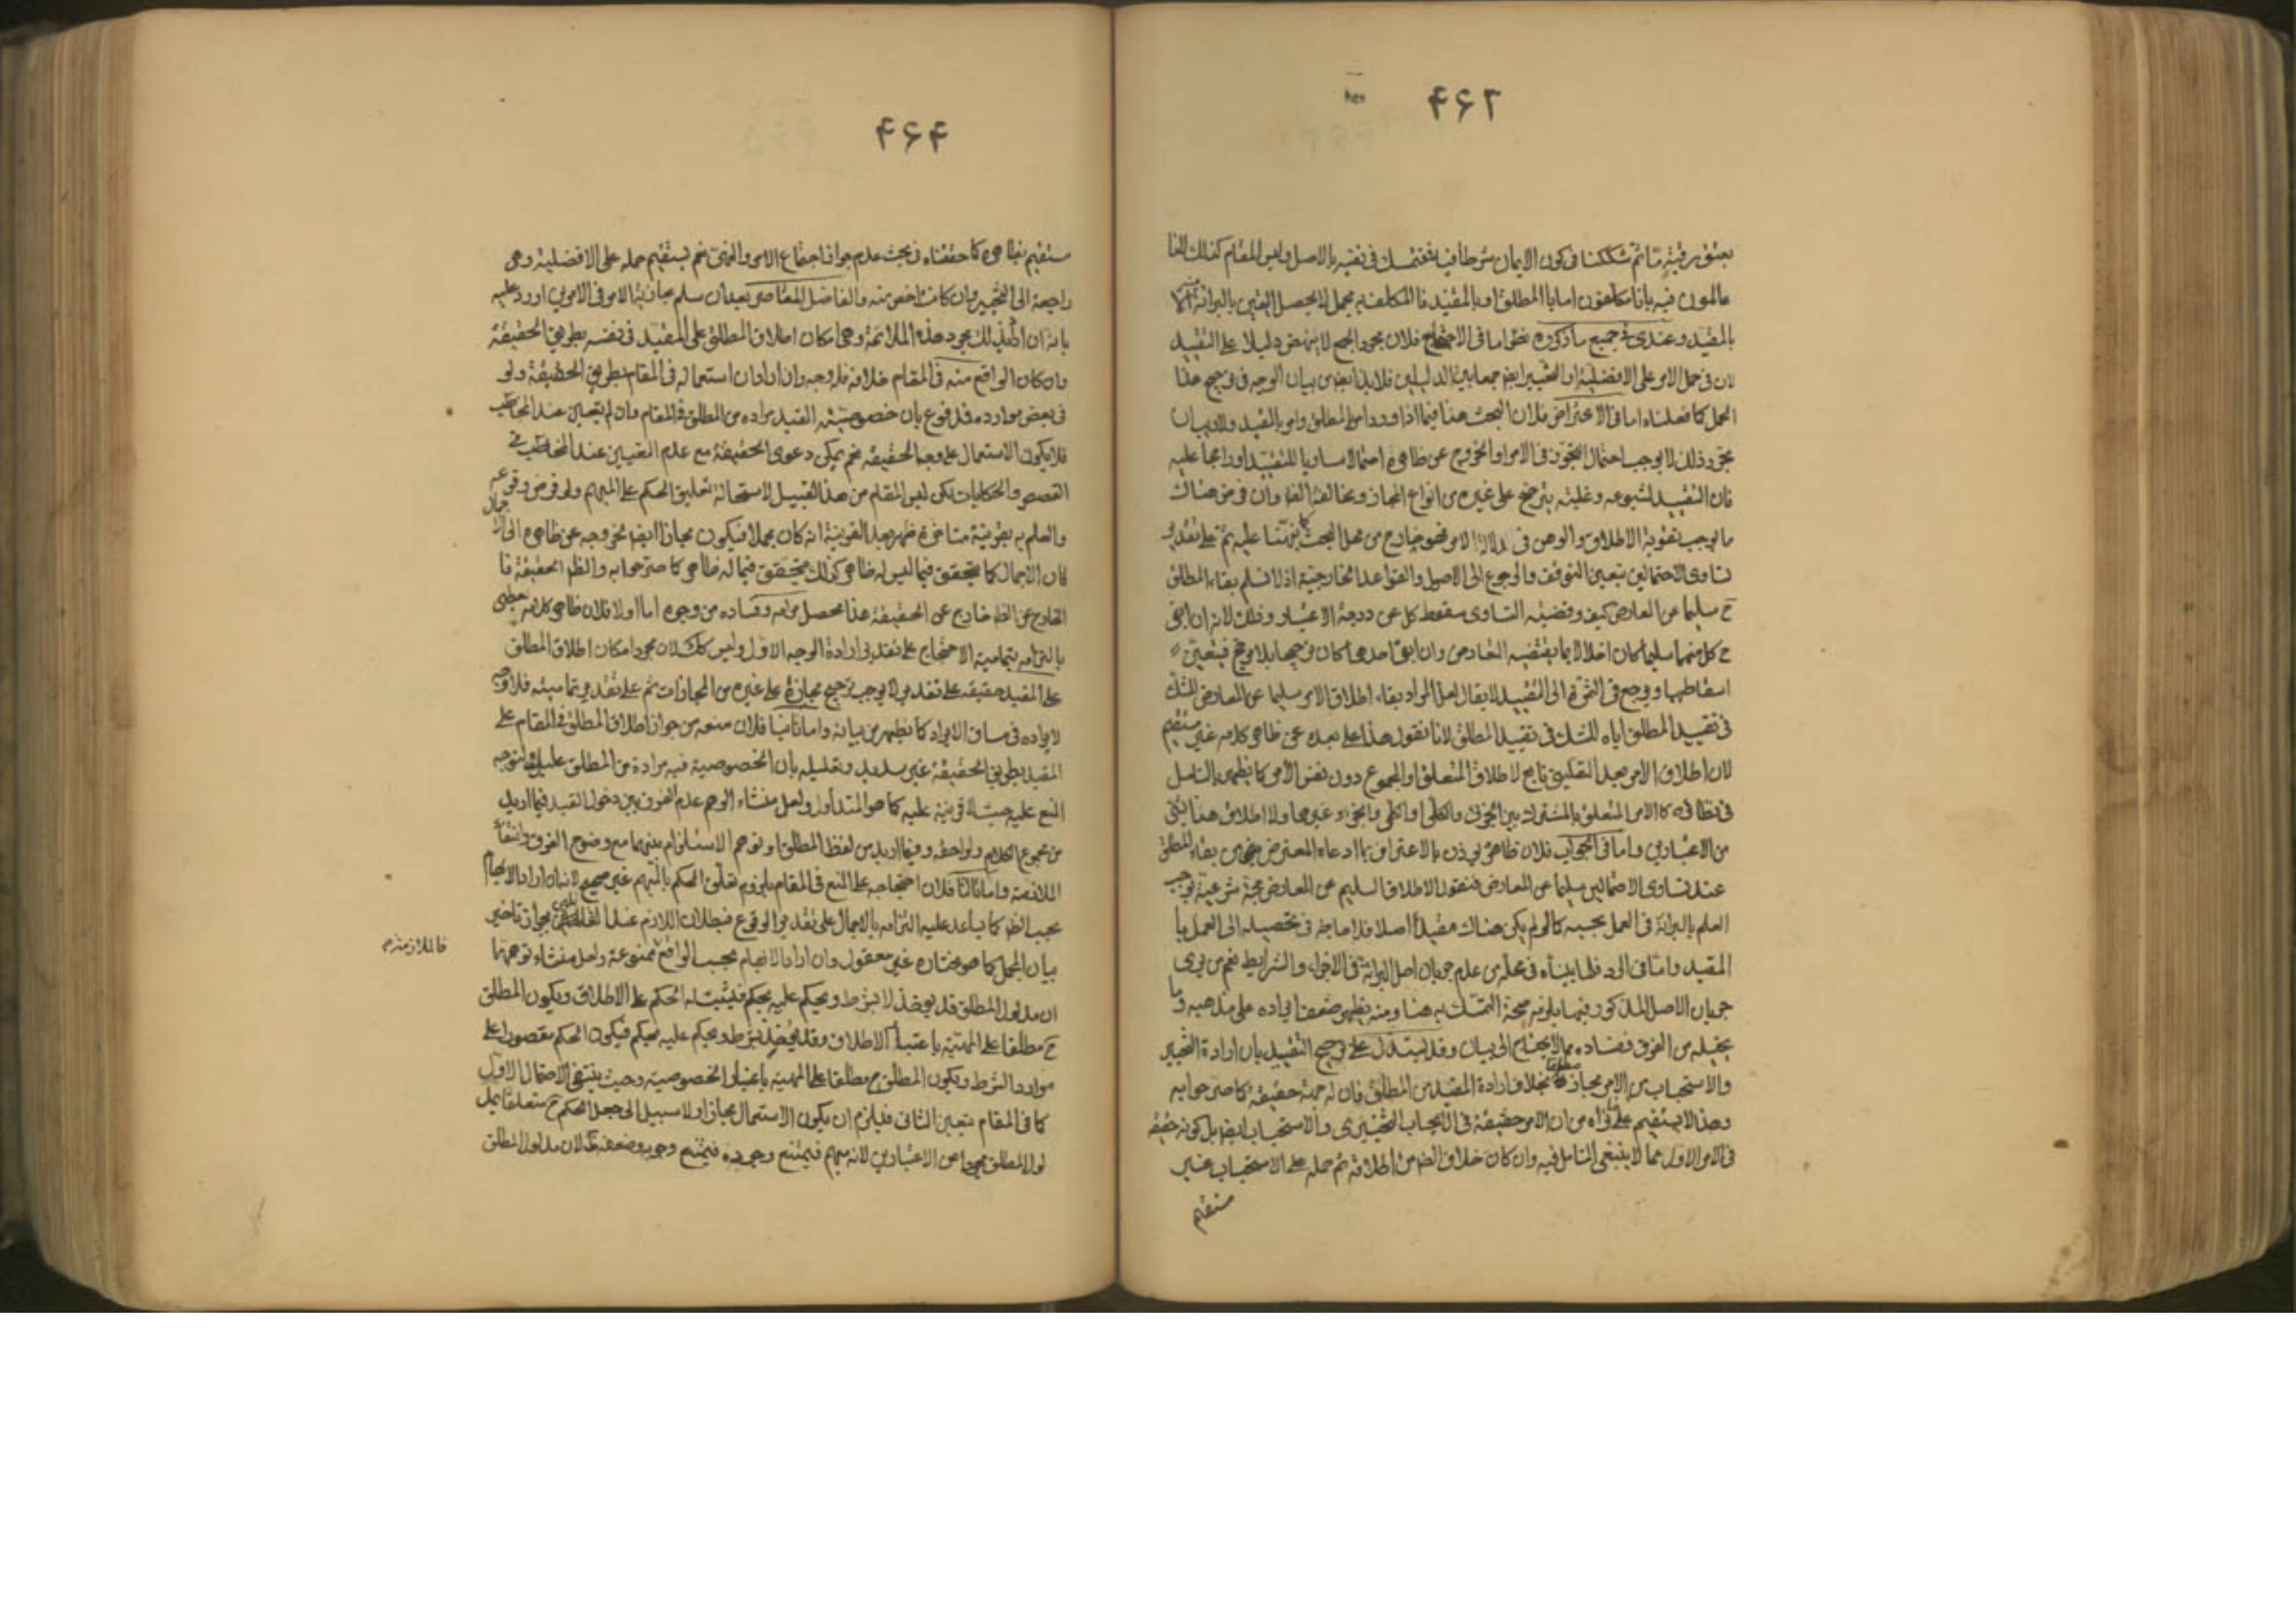 ۴۶۲
بعتق رقبة ما ثم شككنا فى كون الايمان شرطا فيها فنتمسك فى نفيه بالاصل وليس المقام كذلك للنا
عالمون فيه بانا مكلفون اما بالمطلق او بالمقيد فالمكلف به مجمل لا يحصل اليقين بالبرائة
بالمقيد وعندى فى جميع ما ذكروه نظر اما فى الاحتجاج فلان مجرد الجمع لا ينهض دليلا على التقييد
لان فى حمل الامر على الافضلية او التخيير ايضا جمعا بين الدليلين فلا بد من بيان الوجه فى ترجيح هذا
الحمل كما فعلناه اما فى الاعتراض فلان البحث هنا فيما اذا ورد امر بالمطلق وامر بالمقيد ولا ريب ان
مجرد ذلك لا يوجب احتمال التجوز فى الامر او الخروج عن ظاهره احتمالا مساويا للتقييد او راجحا عليه
فان التقييد لشيوعه وغلبته يترجح على غيره من انواع المجاز ومخالفة الظاهر وان فرض هناك
ما يوجب تقوية الاطلاق والوهن فى دلالة الامر فهو خارج من محل البحث كما نبهنا عليه ثم على تقدير
تساوى الاحتمالين يتعين التوقف والرجوع الى الاصول والقواعد الخارجية اذ لا نسلم بقاء المطلق
ح سليما عن المعارض كيف وقضية التساوى سقوط كل عن درجة الاعتبار وذلك لانه ان ابقى
ح كل منهما سليما كان اخلالا بما يقتضيه التعارض وان ابقى احدهما كان ترجيحا بلا مرجح فيتعين
اسقاطهما ويرجع فى الثمرة الى التقييد لا يقال لعل المراد بقاء اطلاق الامر سليما عن المعارض للشك
فى تقييد المطلق اياه للشك فى تقييد المطلق لانا نقول هذا على بعده عن ظاهر كلامه غير مستقيم
لان اطلاق الامر بعد التعليق تابع لاطلاق المتعلق او المجموع دون نفس الامر كما يظهر بالتامل
فى نظائره كالامر المتعلق بالمشترك بين الجزئى والكلى او الكل والجزء وغيرها ولا اطلاق هنا بشئ
من الاعتبارين واما فى الجواب فلان ظاهره يؤذن بالاعتراف بما ادعاه المعترض من بقاء المطلق
عند تساوى الاحتمالين سليما عن المعارض فنقول الاطلاق السليم عن المعارض حجة شرعية توجب
العلم بالبرائة فى العمل بحسبه كما لو لم يكن هناك مقيد اصلا فلا حاجة فى تحصيله الى العمل با
المقيد واما فى الرد فلما بيناه فى محله من عدم جريان اصل البرائة فى الاجزاء والشرايط نعم من يرى
جريان الاصل المذكور فيهما يلزمه صحة التمسك به هنا ومنه يظهر ضعف ايراده على مذهبه وما
يخيله من الفرق ففساده مما لا يحتاج الى بيان وقد يستدل على ترجيح التقييد بان ارادة التخيير
والاستحباب من الامر مجاز مطلقا بخلاف ارادة المقيد من المطلق فان له جهة حقيقة كما صرحوا به
وهذا لا يستقيم على ما نراه من ان الامر حقيقة فى الايجاب التخييرى والاستحباب ايضا بل كونه حقيقة
فى الامر الاول مما لا ينبغى التامل فيه وان كان خلاف الظاهر من اطلاقه ثم حمله على الاستحباب غير
مستقيم
۴۶۴
مستقيم بظاهره كما حققناه فى بحث عدم جواز اجتماع الامر والنهى نعم يستقيم حمله على الافضلية وهى
راجعة الى التخيير وان كانت اخص منه والفاضل المعاصر بعد ان سلم مجازية الامر فى الامرين اورد عليه
بانه ان اريد بذلك مجرد هذه الملائمة وهى امكان اطلاق المطلق على المقيد فى نفسه بطريق الحقيقة
وان كان الواقع منه فى المقام خلافه فله وجه وان ارادان استعماله فى المقام بطريق الحقيقة ولو
فى بعض موارده فمدفوع بان خصوصية القيد مرادة من المطلق فى المقام وان لم يتعين عند المخاطب
فلا يكون الاستعمال على وجه الحقيقة نعم يمكن دعوى الحقيقة مع عدم التعيين عند المخاطب فى
القصص والحكايات لكن ليس المقام من هذا القبيل لاستحالة تعليق الحكم على المبهم ولو فرض وقوعه
والعلم به بقرينة متاخرة ظهر بعد القرينة انه كان مجملا فيكون مجازا ايضا لخروجه عن ظاهره الى الاجمال
فان الاجمال كما يتحقق فيما ليس له ظاهر كذلك يتحقق فيما له ظاهر كما صرحوا به والظاهر الحقيقة فا
لخارج عن الظاهر خارج عن الحقيقة هذا محصل مرامه وفساده من وجوه اما اولا فلان ظاهر كلامه يعطى
بالتزامه بتمامية الاحتجاج على تقدير ارادة الوجه الاول وليس كذلك لان مجرد امكان اطلاق المطلق
على المقيد حقيقة على تقدير لا يوجب ترجيح مجازه على غيره من المجازات ثم على تقدير تماميته فلا وجه
لايراده فى مساق الايراد كما يظهر من بيانه واما ثانيا فلان منعه من جواز اطلاق المطلق فى المقام على
المقيد بطريق الحقيقة غير سديد وتعليله بان الخصوصية فيه مرادة من المطلق عليل يتوجه
المنع عليه حيث لا قرينة عليه كما هو المتداول ولعل منشاء الوهم عدم الفرق بين دخول القيد فيما اريد
من مجموع الكلام ولواحقه وفيما اريد من لفظ المطلق او توهم الاستلزام بينهما مع وضوح الفرق وانتفاء
الملازمة واما ثالثا فلان احتجاجه على المنع فى المقام بلزوم تعلق الحكم بالمبهم غير صحيح لانه ان اراد الابهام
بحسب الظاهر كما يساعد عليه التزامه بالاجمال على تقدير الوقوع فبطلان اللازم عند القائلين بجواز تاخير
بيان المجمل كما هو مختاره غير معقول وان اراد الابهام بحسب الواقع ممنوعة ولعل منشاء توهمها
فالملازمة
ان مدلول المطلق قد يؤخذ لا بشرط ويحكم عليه بحكم فيثبت له الحكم على الاطلاق ويكون المطلق
ح مطلقا على المهية باعتبار الاطلاق وقد يؤخذ بشرط ويحكم عليه بحكم فيكون الحكم مقصورا على
موارد الشرط ويكون المطلق ح مطلقا على المهية باعتبار الخصوصية وحيث ينتفى الاحتمال الاول
كما فى المقام يتعين الثانى فيلزم ان يكون الاستعمال مجازا ولا سبيل الى جعل الحكم ح متعلقا بمد
لول المطلق مجردا عن الاعتبارين لانه مبهم فيمتنع وجوده فيمتنع وجوبه وضعفه ظ لان مدلول المطلق